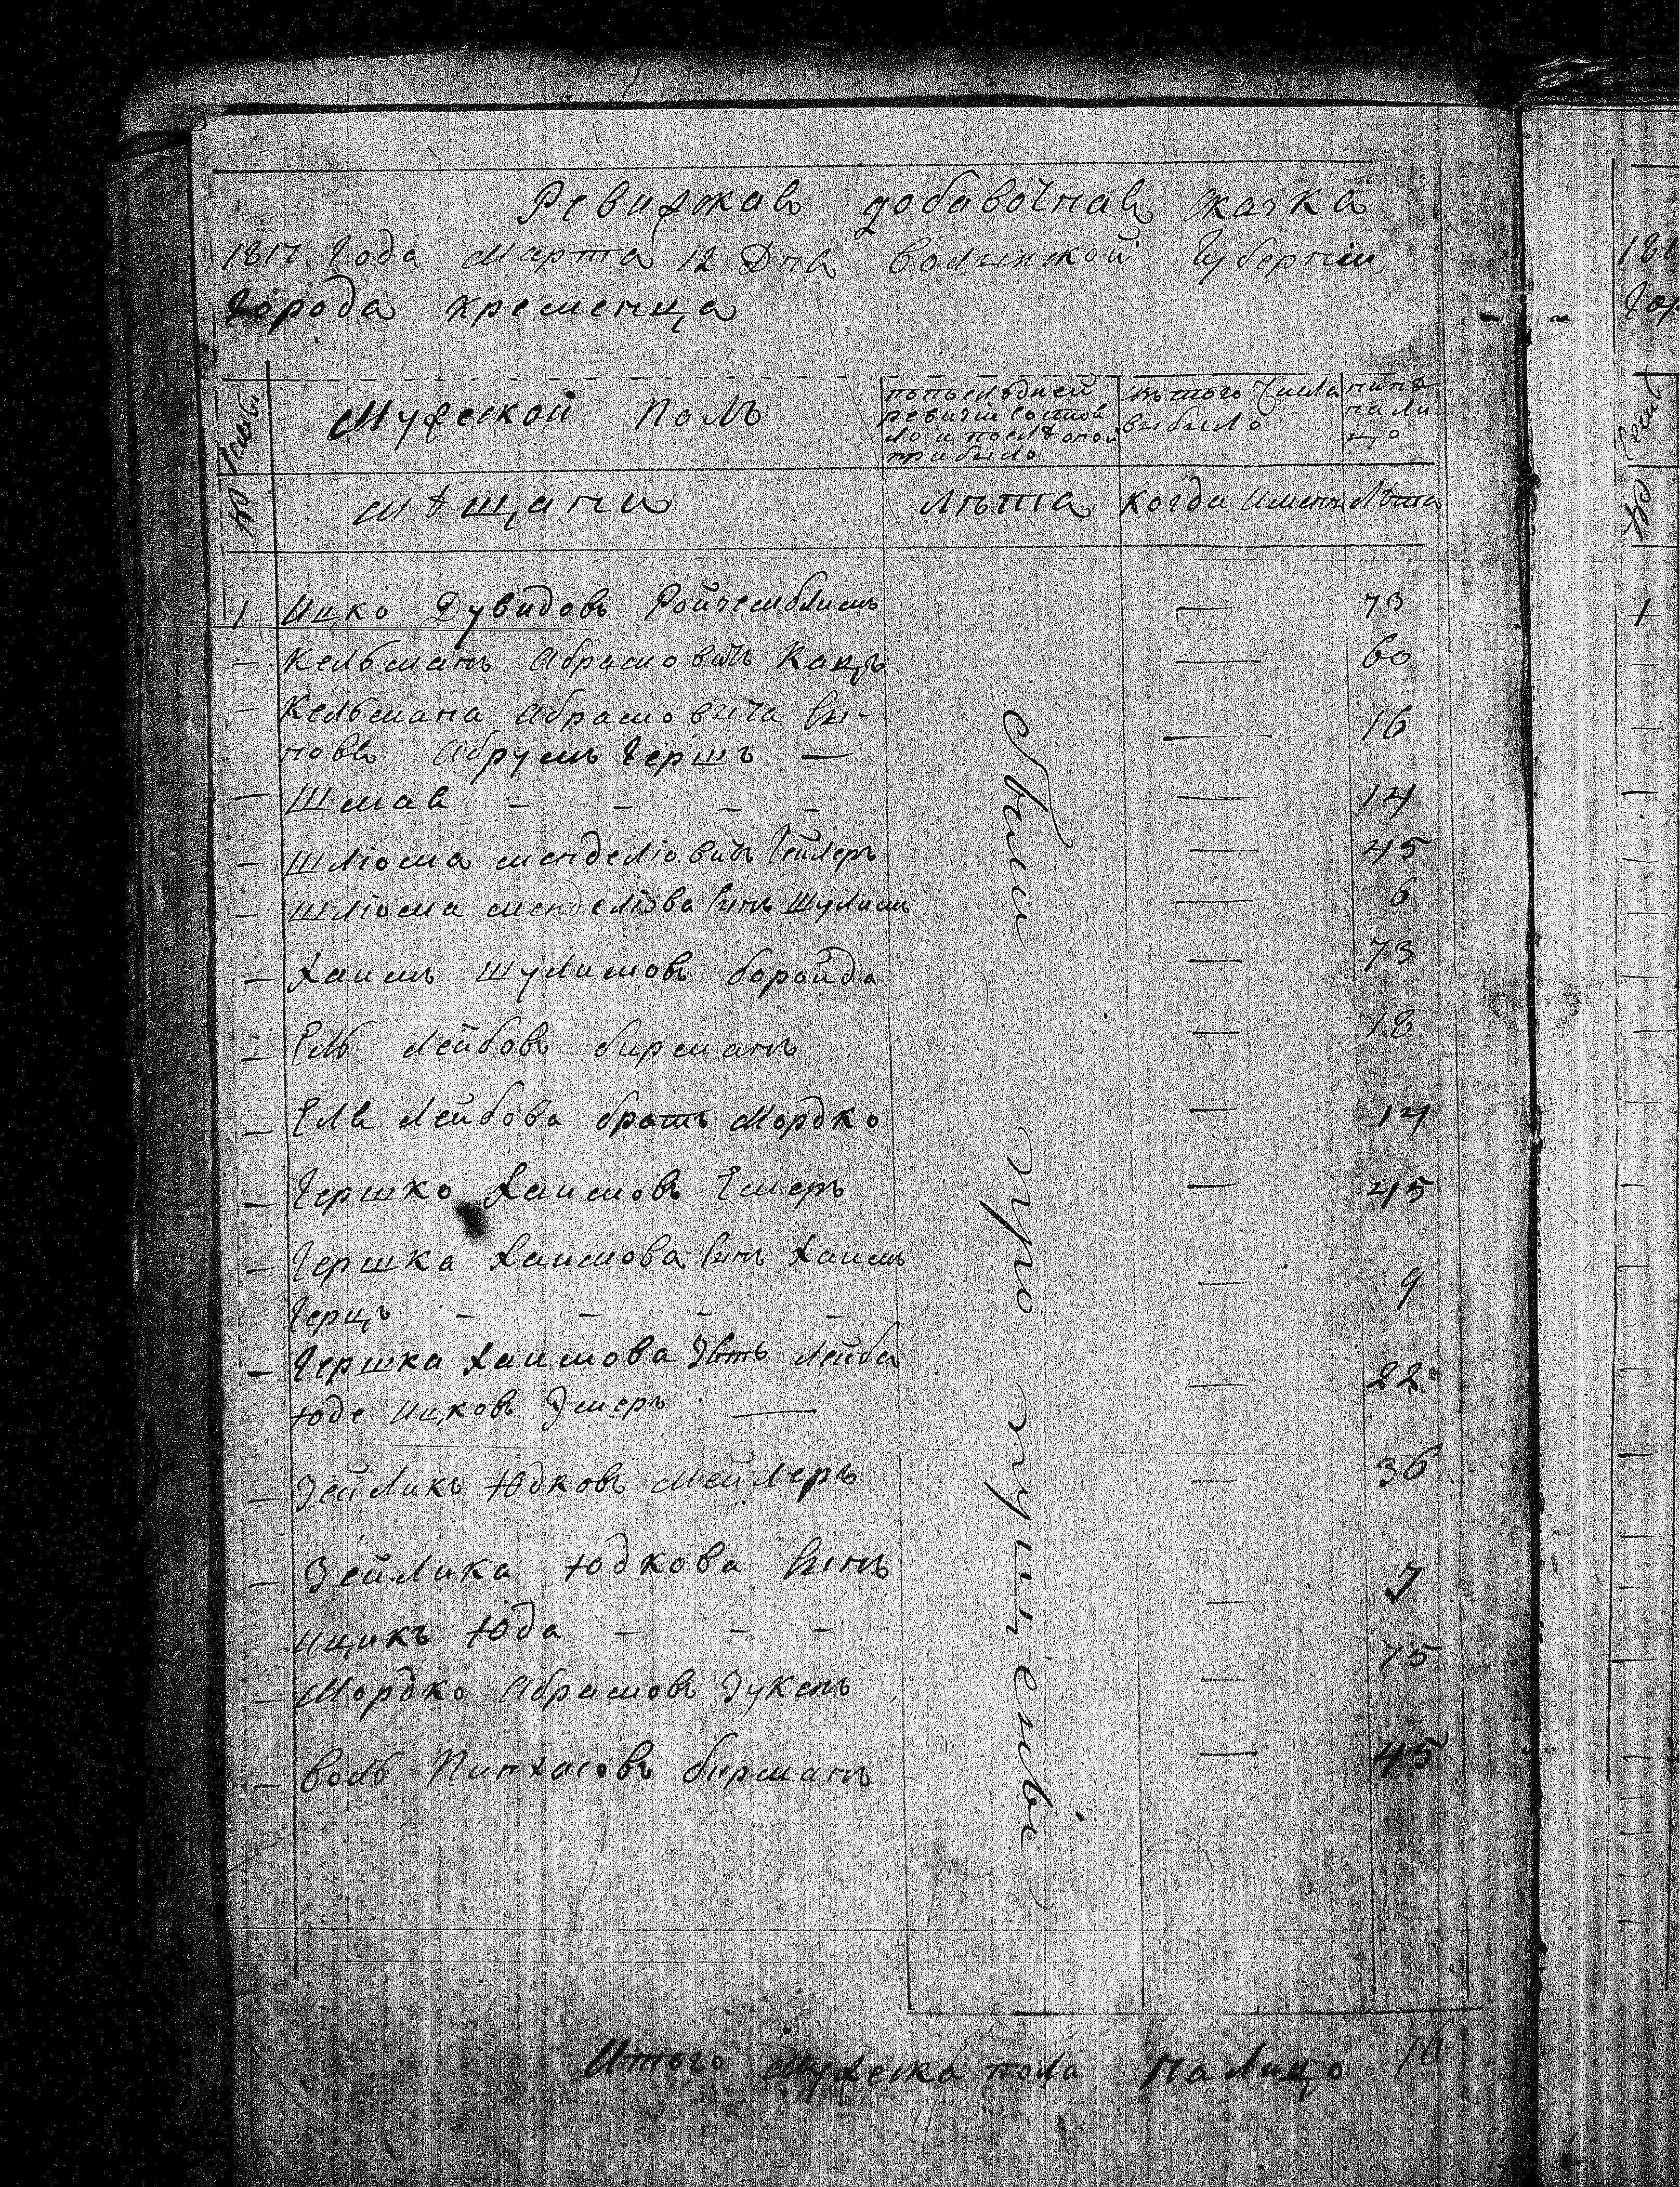 Ревизкая добавочная скаска
1817 Года Марта 12 Дня волынской Губернии
Города кременца
№ Семьи
Мужеской полъ
попослѣдней ревизии состояло и после оной прибыло
изъ того числа выбыло
нынѣ на лицо
мѣщани
Лѣта
когда именно
Лѣта
1 Ицко Дувидовъ — 73
— Кельманъ Абрамовичъ Кацъ — 60
— Кельмана Абрамовича Сы-
новя Абрумъ Гершъ — — 16
— Шмая - - - - — 14
— Шліома менделіовичъ Гейлеръ — 45
— Шліома менделіова Сынъ Шулимъ — 6
— Хаимъ Шулимовъ боройда — 73
— Ель Лейбовъ бирманъ — 18
— Еля Лейбова братъ Мордко — 14
— Гершко Хаимовъ — 45
— Гершка Хаимова Сынъ Хаимъ
Герцъ - - - - — 9
— Гершка Хаимова Зять Лейба
Юде Ицковъ — — 22
— Зейликъ Юдковъ Мейлеръ — 36
— Зейлика Юдкова Сынъ
Ицикъ Юда - - - — 7
— Мордко Абрамовъ Зукенъ — 75
— Воль Пинхасовъ бирманъ — 45
Были пропущены
Итого Мужеска пола На Лицо 16
1